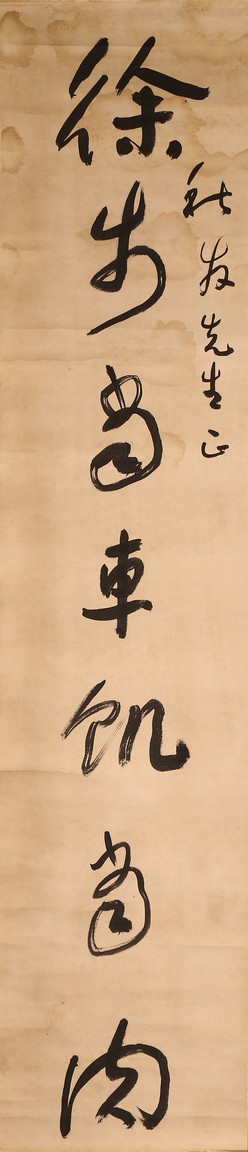 秋友先生正
徐步當車飢當肉